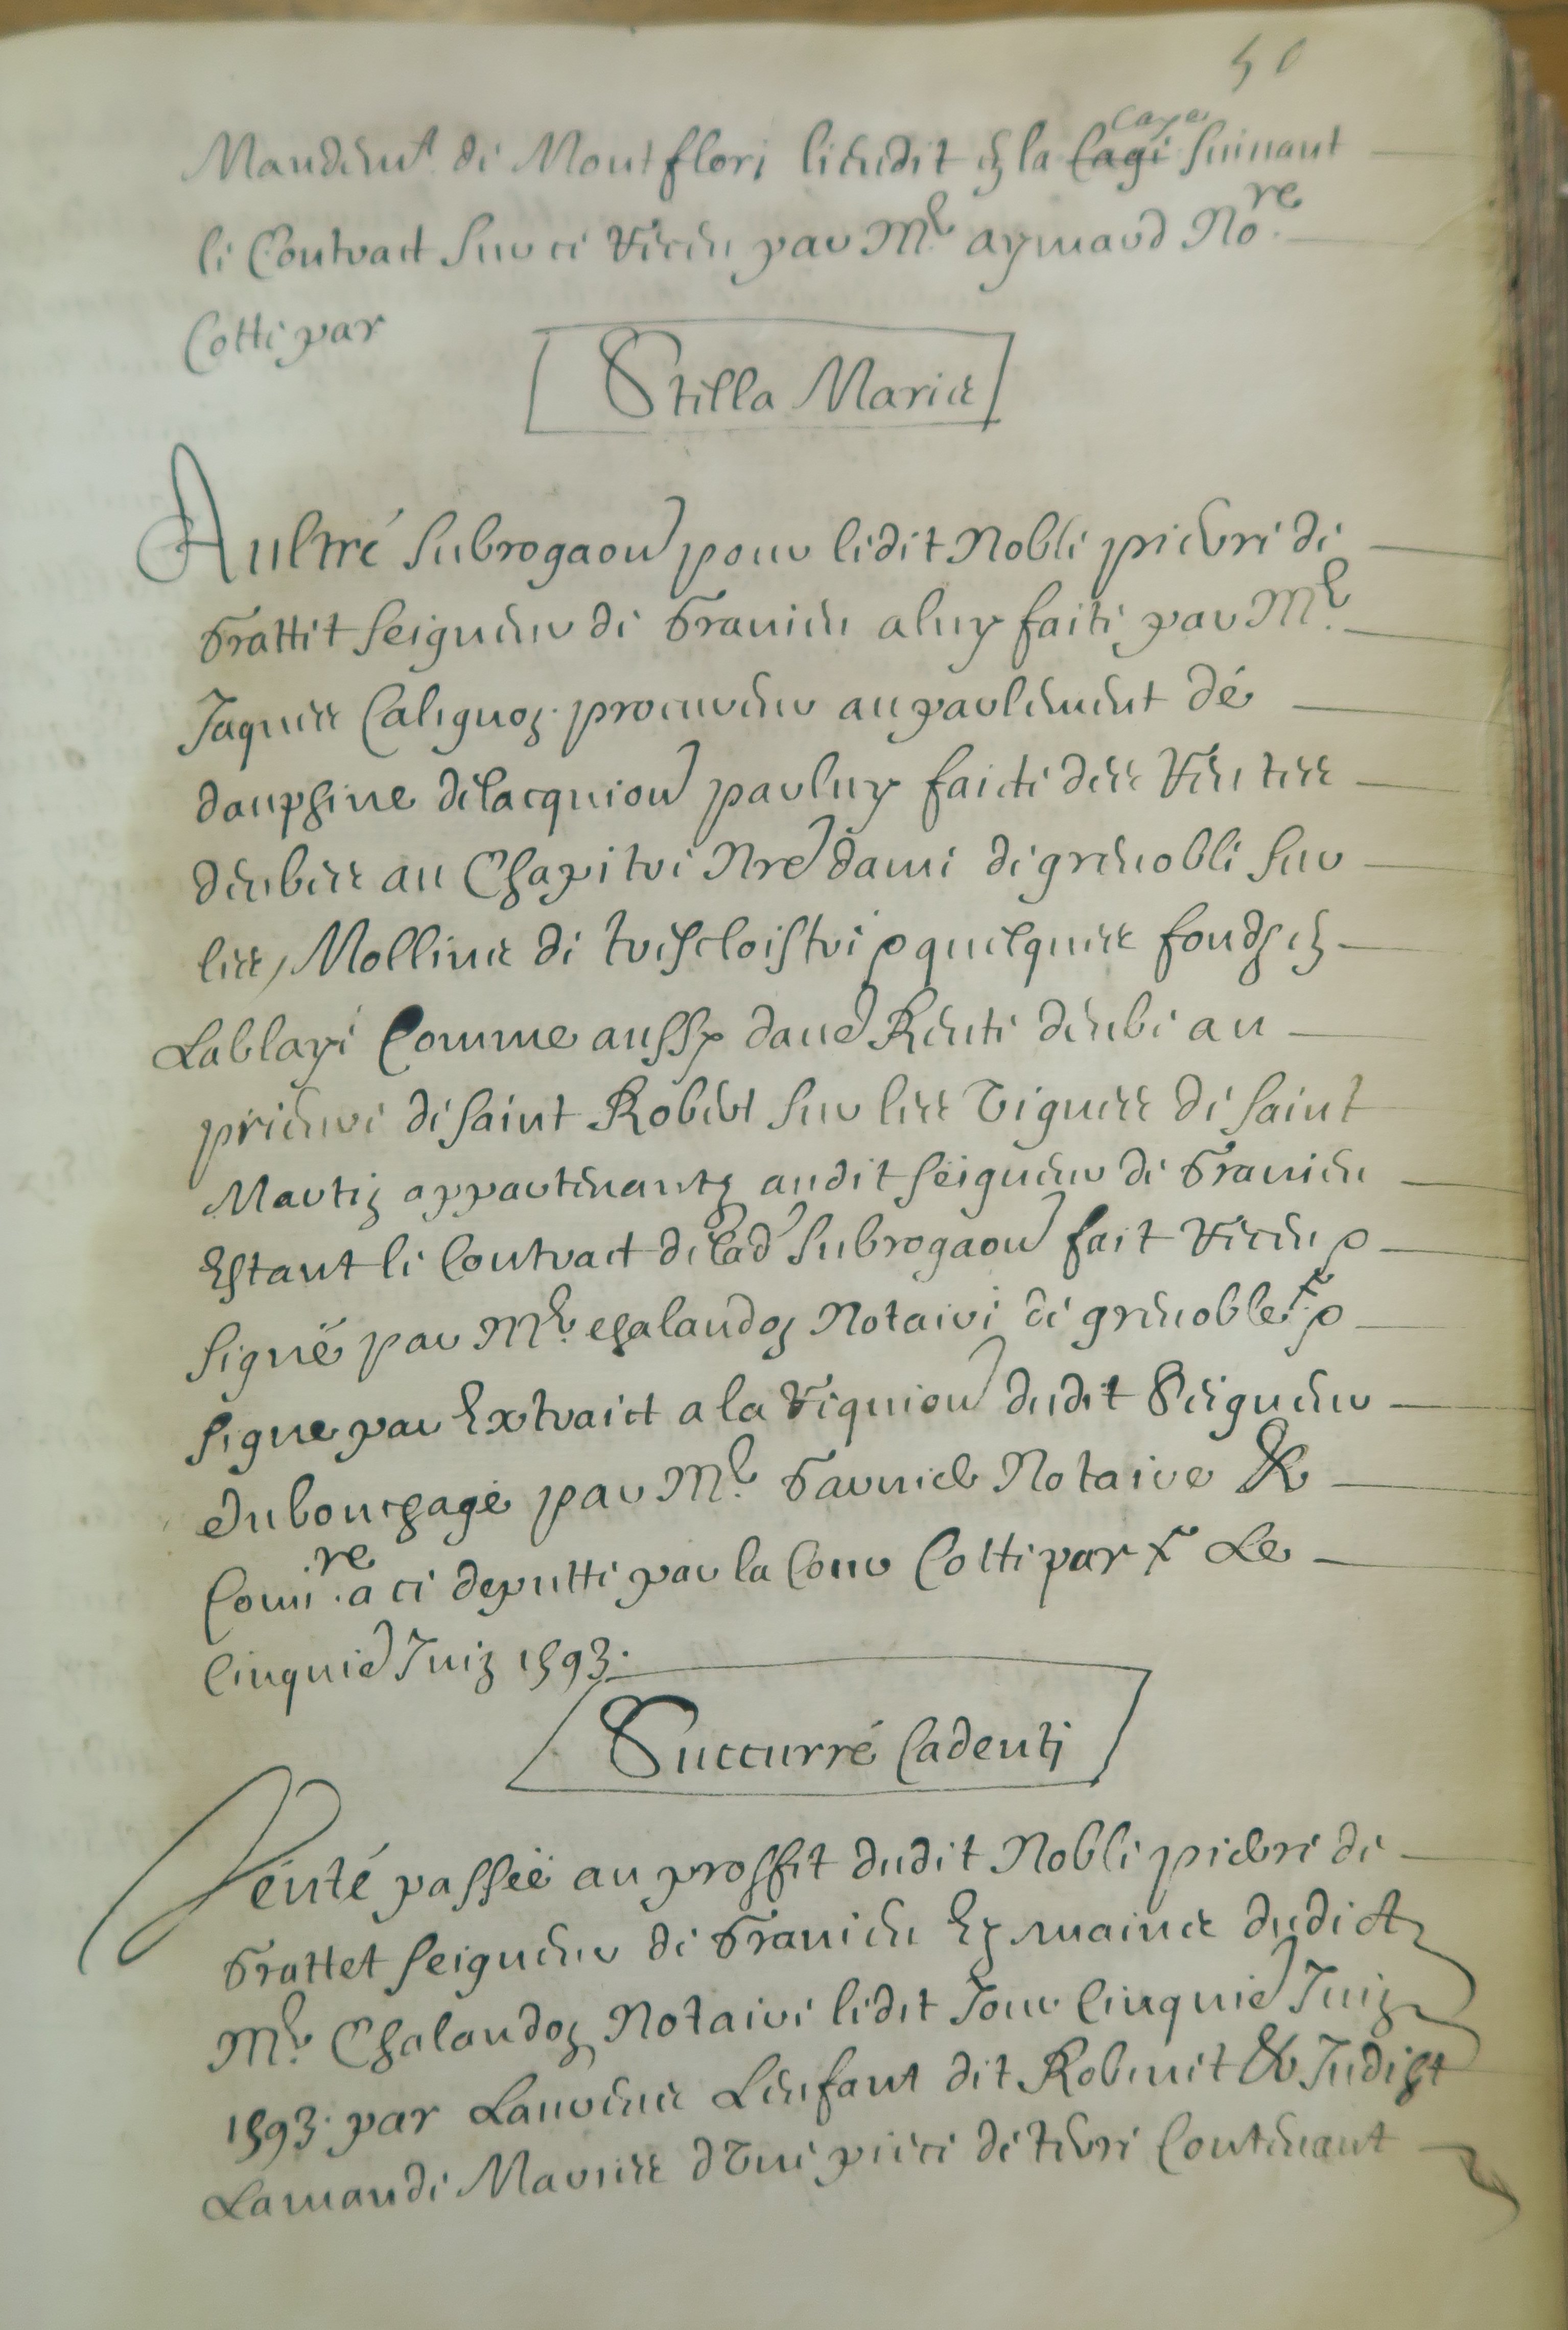 50
Caye
Mandemt. de Montflory lieudit en la Cage suivant
le Contract sur ce Receu par Me. aymard Nore.
Cotte par
Stella Maries
Aultré subrogaon pour ledit Noble pierre de
Frattet seigneur de Franieu a luy faite par Me.
Jaques Calignon procureur au parlement dé
dauphine delacquion par luy faicte des Rentes
deubes au Chapitre Nre dame de grenoble sur
les Mollines de trescloistre & quelques fondz en
Lablaye Comme aussy dane Rente deube au
prieuré de saint Robert sur les vignes de saint
Martin appartenants audit seigneur de Franieu
Estant le Contract de lad subrogaon fait Receu &
signé par Me. chalandon Notaire de grenoble &
signe par Extraict a la Requion dudit Seigneur
du bouchage par Me. Notaire &
Comire. a ce deputte par la Cour Cotte par X Le
Cinquie Juin 1593.
Succurré Cadenti
Venté passeë au proffit dudit Noble pierre de
Frattet seigneur de Franieu Es maines dudict
Me. Chalandon Notaire ledit Jour Cinquie Juin
1593. par Laurens Lenfant dit Robinet & Judict
Lamande Mariés dune piece de terre Contenant